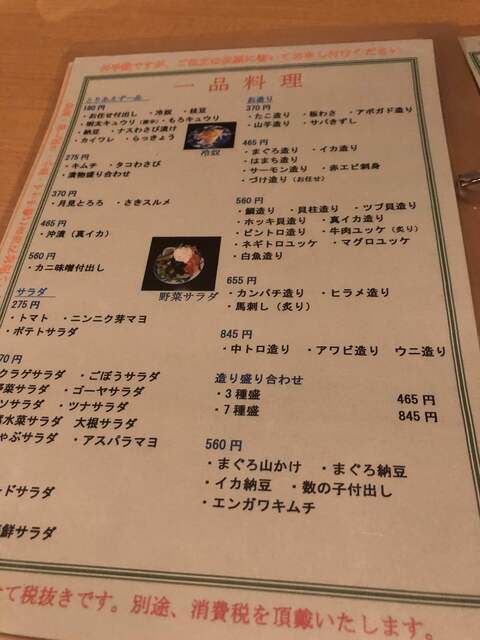 お手数ですが、ご注文は伝票に書いてお申し付けください。
一品料理
とりあえず一品
180 円
・お任せ付出し ・冷奴 ・枝豆
・明太キュウリ ・もろキュウリ
・納豆 ・ナスわさび漬け
・カイワレ ・らっきょう
冷奴
275 円
・キムチ ・タコわさび
・漬物盛り合わせ
370 円
・月見とろろ ・さきスルメ
465 円
・沖漬（真イカ）
560 円
・カニ味噌付出し
野菜サラダ
サラダ
275 円
・トマト ・ニンニク芽マヨ
・ポテトサラダ
70 円
クラゲサラダ ・ごぼうサラダ
野菜サラダ ・ゴーヤサラダ
ツサラダ ・ツナサラダ
水菜サラダ 大根サラダ
ゃぶサラダ ・アスパラマヨ
ードサラダ
鮮サラダ
お造り
370 円
・たこ造り ・板わさ ・アボガド造り
・山芋造り ・サバきずし
465 円
・まぐろ造り ・イカ造り
・はまち造り
・サーモン造り ・赤エビ刺身
・づけ造り（お任せ）
560 円
・鯛造り ・貝柱造り ・ツブ貝造り
・ホッキ貝造り ・真イカ造り
・ビントロ造り ・牛肉ユッケ（炙り）
・ネギトロユッケ ・マグロユッケ
・白魚造り
655 円
・カンパチ造り ・ヒラメ造り
・馬刺し（炙り）
845 円
・中トロ造り ・アワビ造り ウニ造り
造り盛り合わせ
・３種盛 465 円
・７種盛 845 円
560 円
・まぐろ山かけ ・まぐろ納豆
・イカ納豆 ・数の子付出し
・エンガワキムチ
て税抜きです。別途、消費税を頂戴いたします。